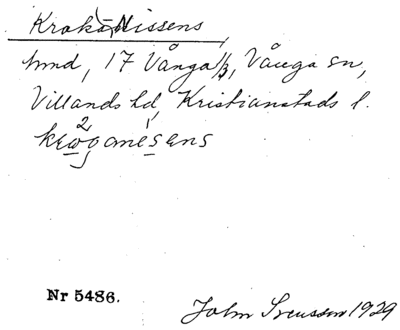 Krokå Nissens
hmd, 17 Vånga 1/3, Vånga sn,
Villands hd, Kristianstads l.
krωgamésens
Nr 5486.
John Svensson 1929